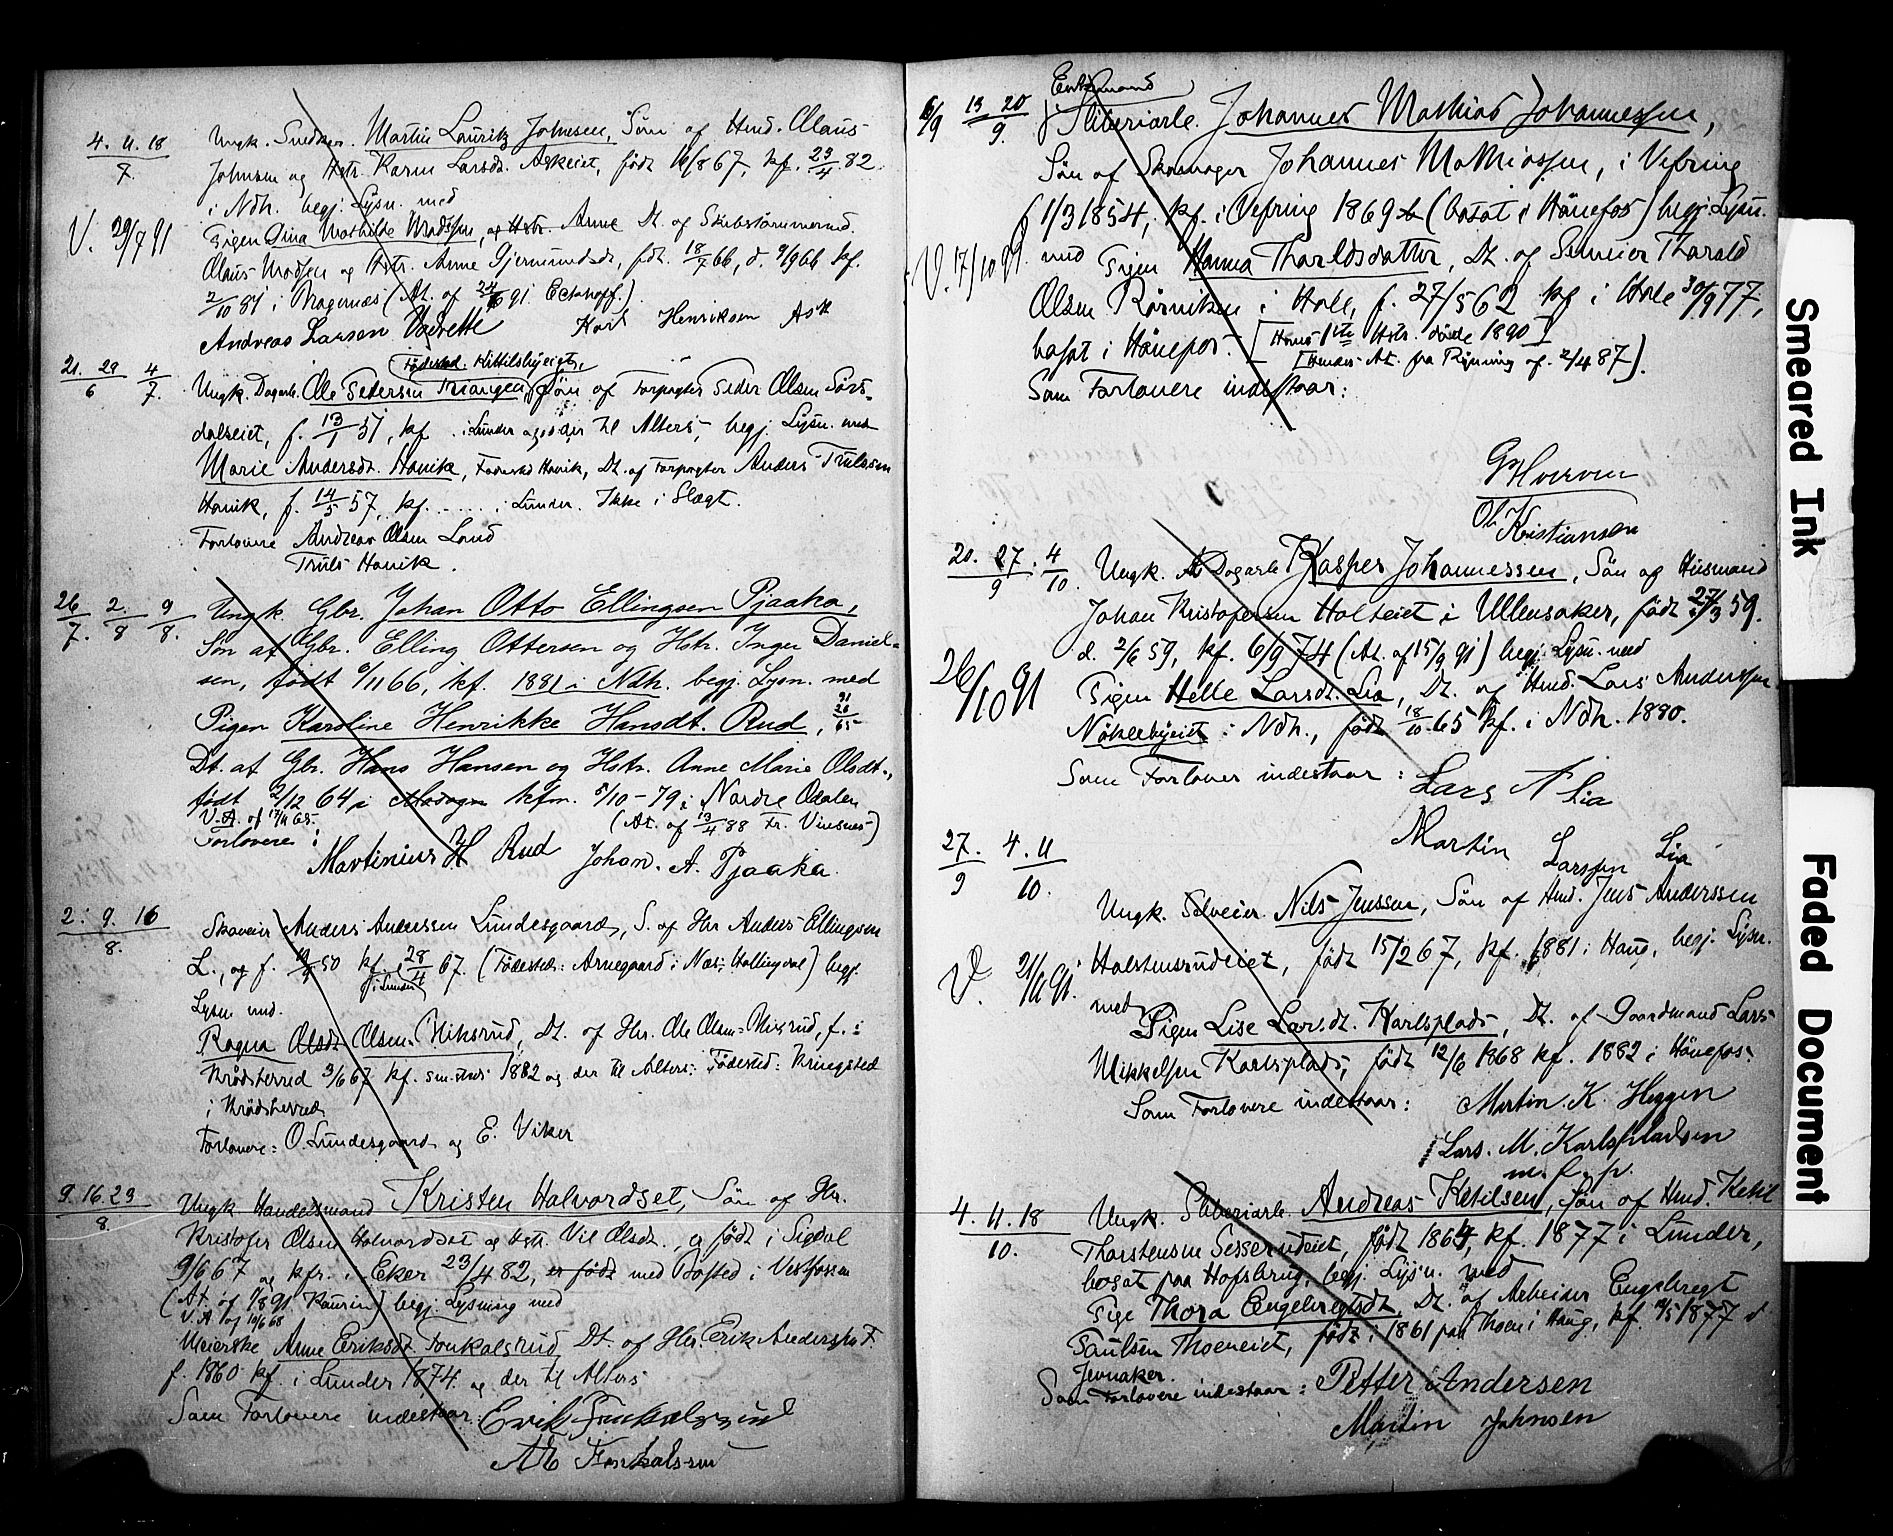 4. 11. 18
7.
Ungk. Snedker Martin Lauritz Johnsen, Søn af Hmd. Olaus
Johnsen og Hstr. Karen Larsdt. Askeiet, født 16/8 67, kf. 23/4 82
i Ndh. begj. Lysn. med
V. 29/7 91
Pigen Dina Mathilde Madsen, og Hstr. Anne Dt. af Skibstømmermd.
Olaus Madsen og Hstr. Anne Gjermundsdt, fdt. 18/7 66, d. 9/9 66 kf.
2/10 81 i Magernæs (At. af 24/6 91. Eckhoff.)
Andreas Larsen Karl Henriksen Ask
21. 29 4
6 7.
Fødested. Kittilsbyeiet
Ungk. Dagarb. Ole Pedersen, Søn af Forpagter Peder Olsen Sørs-
dalseiet, f. 13/1 51, kf. i Lunder og der til Alters, begj. Lysn. med
Marie Andersdt. Hanvik, Fødested Hanvik, Dt. af Forpagter Anders Trulssen
Hanvik, f. 14/5 57, kf. ...... i Lunder. Ikke i Slægt.
Forlovere Andreas Olsen Lund
Truls Hanvik.
26 2. 9
7. 8 8.
Ungk. Gbr. Johan Otto Ellingsen Pjaaka,
Søn af Gbr. Elling Ottersen og Hstr. Inger Daniel-
sen, født 6/11 66, kf. 1881 i Ndh. begj. Lysn. med
Pigen Karoline Henrikke Hansdt. Rud,
Dt. af Gbr. Hans Hansen og Hstr. Anne Marie Olsdt.,
født 2/12 64 i kfm. 5/10 - 79 i Nordre Odalen
V.A. af 17/11 65. (At. af 13/4 88 Fr. Vinsnes)
Forlovere:
Martinius H. Rud Johan. A. Pjaaka.
2. 9. 16
8.
Skoveier Anders Andersen Lundesgaard, S. af Gbr Anders Ellingsen
L., og f. 50 kf. i Lunder 67. (Fødested: Arnegaard i Næs, Hallingdal) begj.
Lysn med.
Ragna Olsdt Olsen, Dt. af Gbr. Ole Olsen, f. i
Krødsherred 3/6 67 kf. smsteds 1882 og der til Alters. Fødested: Kringsted
i Krødsherred
Forlovere: O. Lundesgaard og E. Viker
9. 16. 23
8.
Ungk. Handelsmand Kristen Halvordset, Søn af Gbr.
Kristofer Olsen Halvordset og hstr. Olsdt., er født i Sigdal
9/6 67 og kfr. i Eker 23/4 82, er født med Bosted i Vestfossen
(At. af 1/8 91 Kaurin) begj. Lysning med
V.A. af 10/6 68
Meierske Anne Eriksdt. Fonkalsrud Dt. af Gbr. Erik Anderssen F.
f. 1860 kf. i Lunder 1874. og der til Alters
Som Forlovere indestaar: Erik Fonkalsrud
A. E. Fonkalsrud
6/9 13 20
9.
Enkemand
Sliberiarb. Johannes Mathias Johannessen,
Søn af Skomager Johannes Mathiassen, i Vefring
f 1/3 1854, kf. i Vefring 1869 (bosat i Hønefos) begj. Lysn.
V. 17/10 91.
med Pigen Hanna Tharldsdatter, Dt. af Selveier Tharald
Olsen i Hole, f. 27/5 62 kf i Hole 30/9 77,
bosat i Hønefos. [Hans 1ste Hstr. døde 1890]
[Hendes At. fra af 2/4 87].
Som Forlovere indestaar:
Ol. Kristiansen
20. 27. 4
9 10.
Ungk. Dagarb Kasper Johannessen, Søn af Husmand
Johan Kristofersen Holteiet i Ullensaker, født 27/3 59.
d. 2/6 59, kf. 6/9 74 (At. af 15/9 91) begj. Lysn. med
26/10 91
Pigen Helle Larsdt. Lia, Dt. af Hmd. Lars Anderssen
Nöklebyeiet i Ndh., født 18/10 65 kf. i Ndh. 1880.
Som Forlover indestaar: Lars A Lia
Martin Larssen Lia
27. 4. 11
9 10.
Ungk. Selveier Nils Jenssen, Søn af Hmd. Jens Anderssen
Holstensrudeiet, født 15/2 67, kf. 1881 i Haug, begj. Lysn.
V. 21/11 91.
med
Pigen Lise Larsdt. Karlsplads, Dt. af Gaardmand Lars
Mikkelsen Karlsplads, født 12/6 1868 kf. 1882 i Hønefos.
Som Forlovere indestaar: Martin. K. Heggen
Lars. M. Karlspladsen
m. f. p.
4. 11. 18
10.
Ungk. Sliberiarb. Andreas Ketilsen, Søn af Hmd. Ketil
Thorstensen Sesserudeiet, født 1864, kf. 1877 i Lunder,
bosat paa Hofsbrug, begj. Lysn. med
Pige Thora Engebregtsdt, Dt. af Arbeider Engebregt
Paulsen Thoeneiet, født i 1861 paa Thoen i Haug, kf. 1877 i
Jevnaker.
Som Forlovere indestaar: Petter Andersen
Martin Johnsen
Smeared Ink
Faded Document